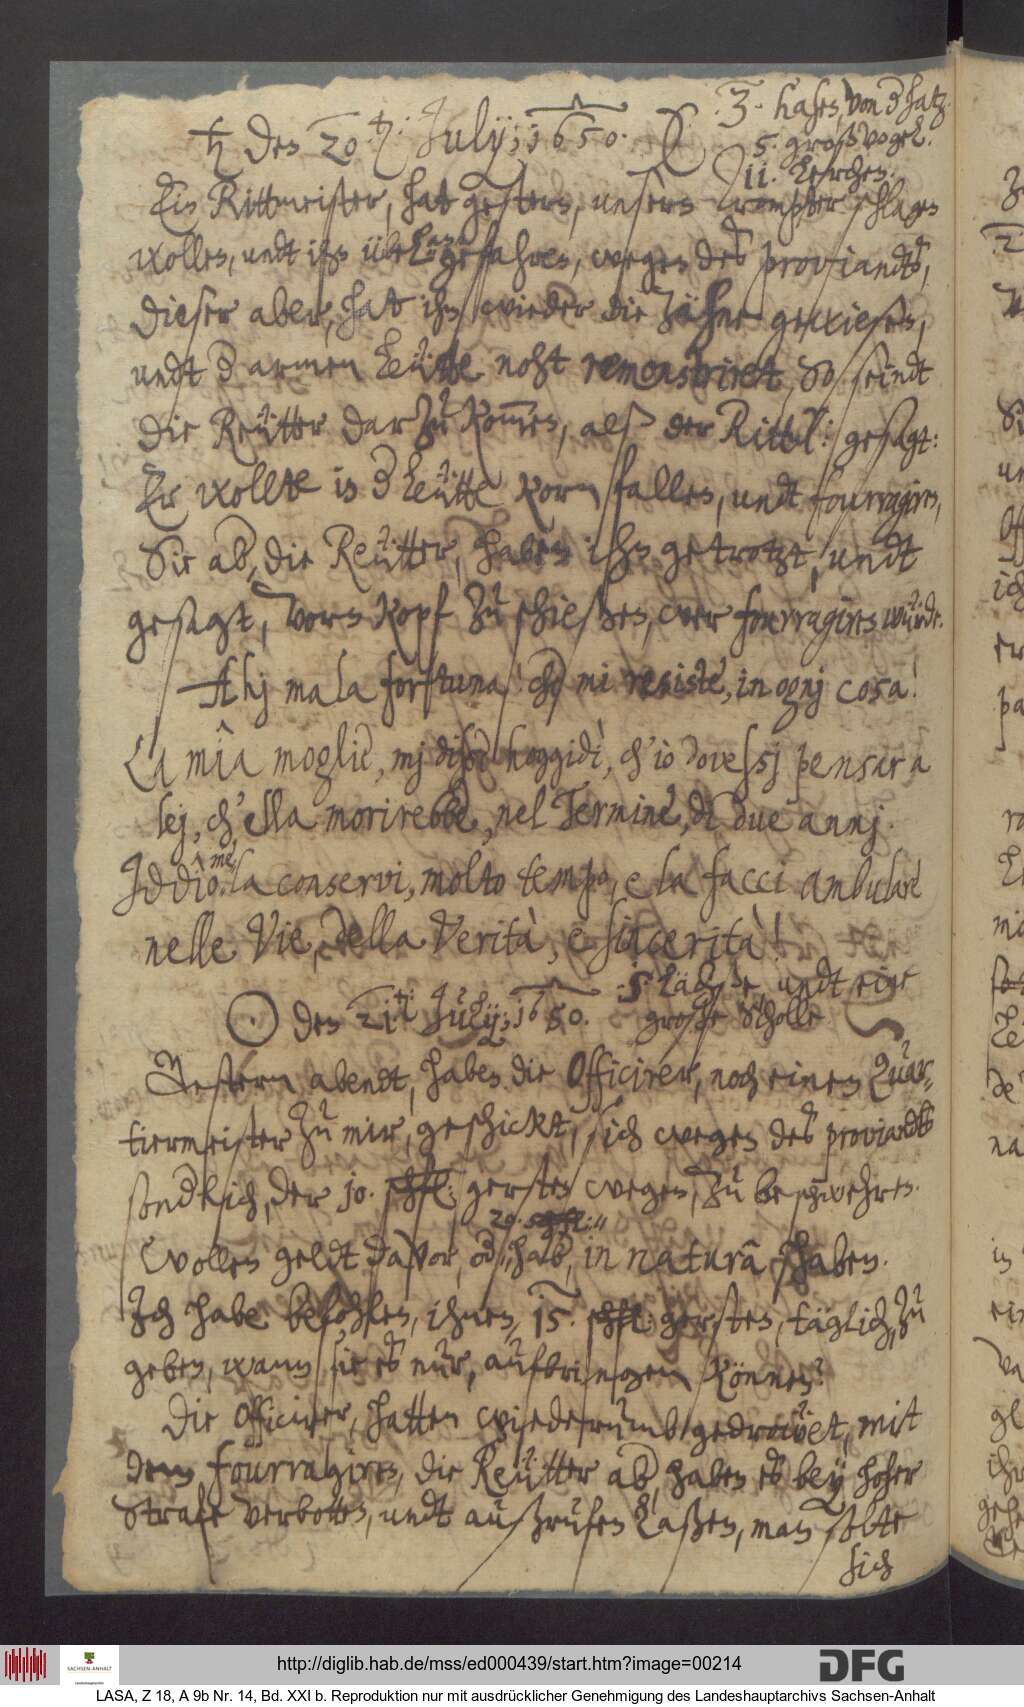 ♄ den 20.ten July; 1650.
3. hasen, von der hatz.
5. groß vogel.
11. Lerchen.
Ein Rittmeister, hat gestern, unsern Trompter schlagen
wollen, undt ihn übel angefahren, wegen des proviandts,
dieser aber, hat ihm wieder die Zähne gewiesen,
undt der armen Leütte noht remonstriret, So seindt
die Reütter darzu kommen, alß der Rittm: gesagt:
Er wollte in der Leütte korn fallen, undt fourragiren,
Sie aber, die Reütter, haben ihm getrotzt, undt
gesagt, vorn kopf zu schießen, wer fourragiren würde.
Ahj mala fortuna! che mi resiste, in ognj cosa!
La mîa moglie, mj disse hoggidì, ch'io dovessj pensar a
lej, ch'ella morirebbe, nel Termine, di due annj.
Iddîo me la conservi, molto tempo, e la facci ambulare
nelle Vie, della Verità, e sincerità!
☉ den 21ten July; 1650.
5 Lächße, undt eine
große Scholle
Gestern abendt, haben die Officirer, noch einen Quar-
tiermeister zu mir, geschickt, sich wegen des proviandts
sonderlich, der 10. schfl: gersten wegen, zu beschwehren.
20. schfl:"
Wollen geldt davor, oder, halb, in naturâ haben.
Ich habe befohlen, ihnen, 15. schfl: gersten, täglich, zu
geben, wann sie es nur, aufbringen können?
Die Officirer, hatten wiederumb gedrowet, mit
dem fourragiren, die Reütter aber, haben es bey hoher
Strafe verbotten, undt außrufen laßen, man sollte
sich
http://diglib.hab.de/mss/ed000439/start.htm?image=00214
DFG
SACHSEN-ANHALT
LASA, Z 18, A 9b Nr. 14, Bd. XXI b. Reproduktion nur mit ausdrücklicher Genehmigung des Landeshauptarchivs Sachsen-Anhalt